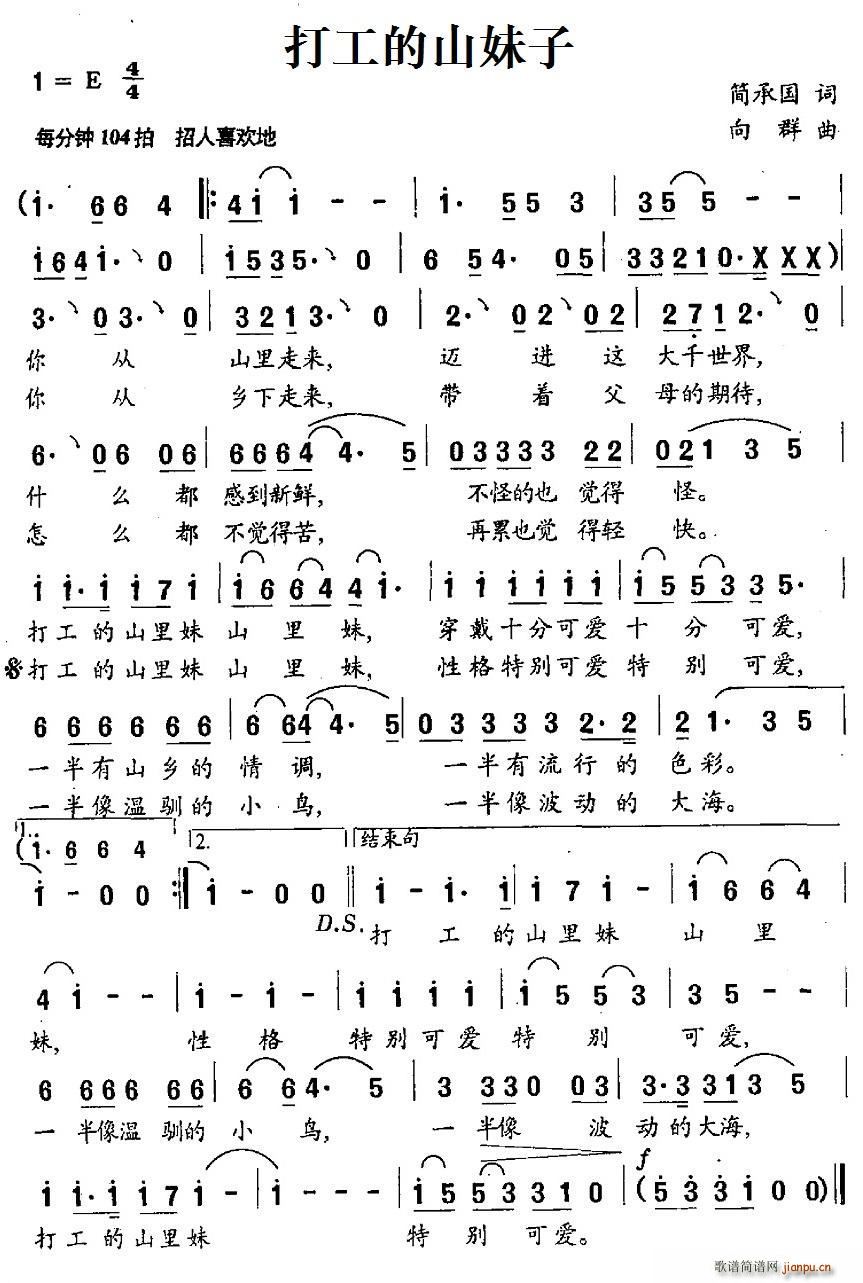 打工的山妹子
1 = E 4/4
简承国 词
每分钟104拍 招人喜欢地
向 群 曲
(i· 6 6 4 ‖: 4 i i - - | i· 5 5 3 | 3 5 5 - - |
i 6 4 i· 0 | i 5 3 5· 0 | 6 5 4· 0 5 | 3 3 2 1 0· X X X) |
3· 0 3· 0 | 3 2 1 3· 0 | 2· 0 2 0 2 | 2 7 1 2· 0 |
你 从 山里走来, 迈 进 这 大千世界,
你 从 乡下走来, 带 着 父 母的期待,
6· 0 6 0 6 | 6 6 6 4 4· 5 | 0 3 3 3 3 2 2 | 0 2 1 3 5 |
什 么 都 感到新鲜, 不怪的也 觉得 怪。
怎 么 都 不觉得苦, 再累也觉 得轻 快。
i i· i i 7 i | i 6 6 4 4 i· | i i i i i i | i 5 5 3 3 5· |
打 工 的 山里妹 山 里 妹, 穿戴十分可爱 十 分 可爱,
打 工 的 山里妹 山 里 妹, 性格特别可爱 特 别 可爱,
6 6 6 6 6 6 | 6 6 4 4· 5 | 0 3 3 3 3 2· 2 | 2 1· 3 5 |
一半有山乡的 情 调, 一半有流行的 色彩。
一半像温驯的 小 鸟, 一半像波动的 大海。
1. (i· 6 6 4 2. 结束句
i - 0 0 :‖ i - 0 0 ‖ i - i· i | i 7 i - | i 6 6 4 |
D.S. 打 工 的 山里妹 山 里
4 i - - | i - i - | i i i i | i 5 5 3 | 3 5 - - |
妹, 性 格 特别可爱 特 别 可爱,
6 6 6 6 6 6 | 6 6 4· 5 | 3 3 3 0 0 3 | 3· 3 3 1 3 5 |
一 半像温 驯的 小 鸟, 一 半像 波 动的大海,
f
i i· i i 7 i | i - i - | i 5 5 3 3 1 0 | (5 3 3 i 0 0) ‖
打 工 的 山里妹 特 别 可爱。
歌谱简谱网
jianpu.cn